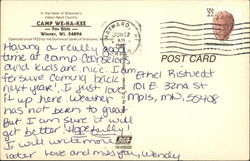 In the heart of Wisconsin's
Indian Head Country
CAMP WE-HA-KEE
For Girls
Winter, WI. 54896
Operated since 1923 by the Dominican Sisters of Sinsinawa
HAYWARD
JUN 27
AM
POST CARD
Having a really good
time at camp. Counselors
and kids are nice. I am
for sure coming back
next year! I just love
it up here. Weather
has not been to great
But I am sure it will
get better Hopefully!
I will write more
later love and miss you, Wendy
Ethel Ristvedt
101 E. 32nd St
Mpls, MN, 55408